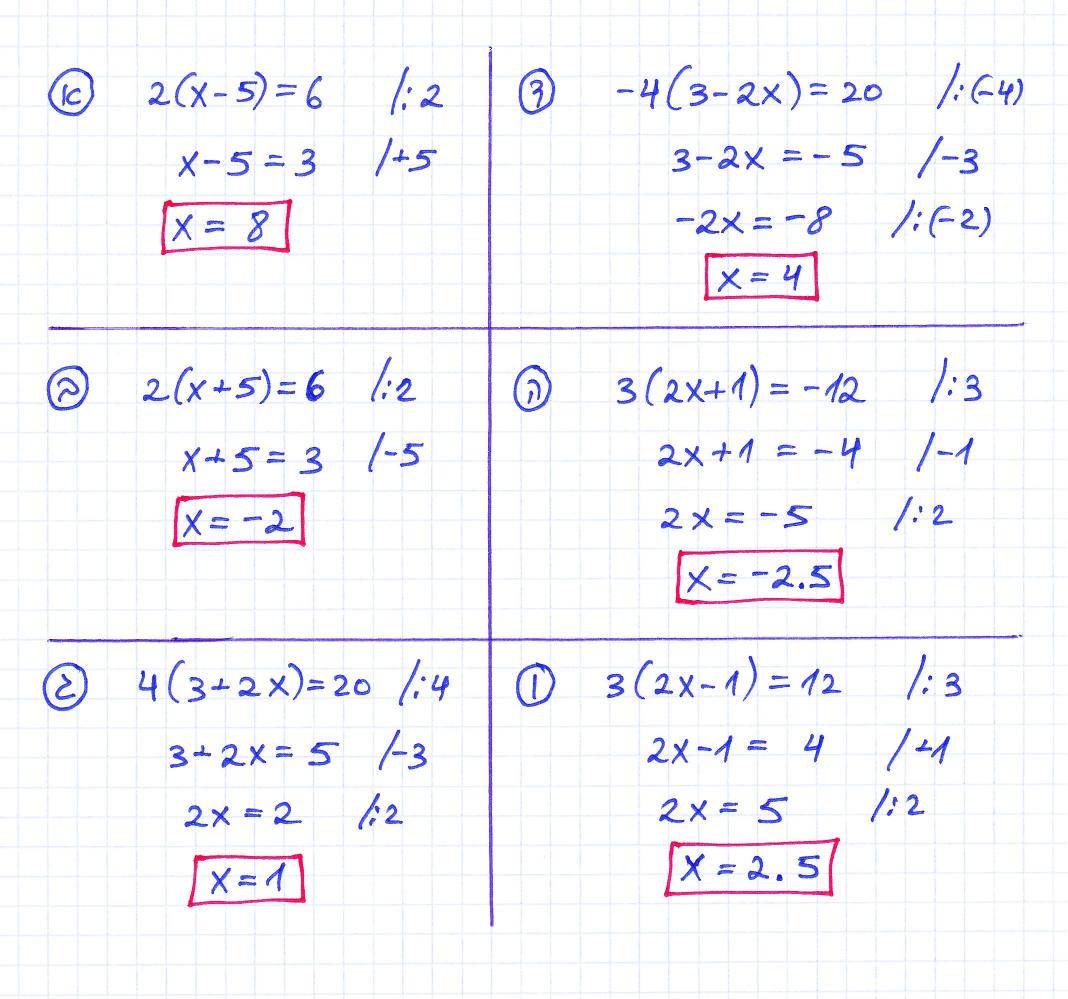 א 2(x-5)=6 /:2
x-5=3 /+5
x= 8
ב 2(x+5)=6 /:2
x+5=3 /-5
x=-2
ג 4(3+2x)=20 /:4
3+2x=5 /-3
2x=2 /:2
x=1
ד -4(3-2x)=20 /:(-4)
3-2x=-5 /-3
-2x=-8 /:(-2)
x=4
ה 3(2x+1)=-12 /:3
2x+1=-4 /-1
2x=-5 /:2
x=-2.5
ו 3(2x-1)=12 /:3
2x-1= 4 /+1
2x=5 /:2
x=2.5